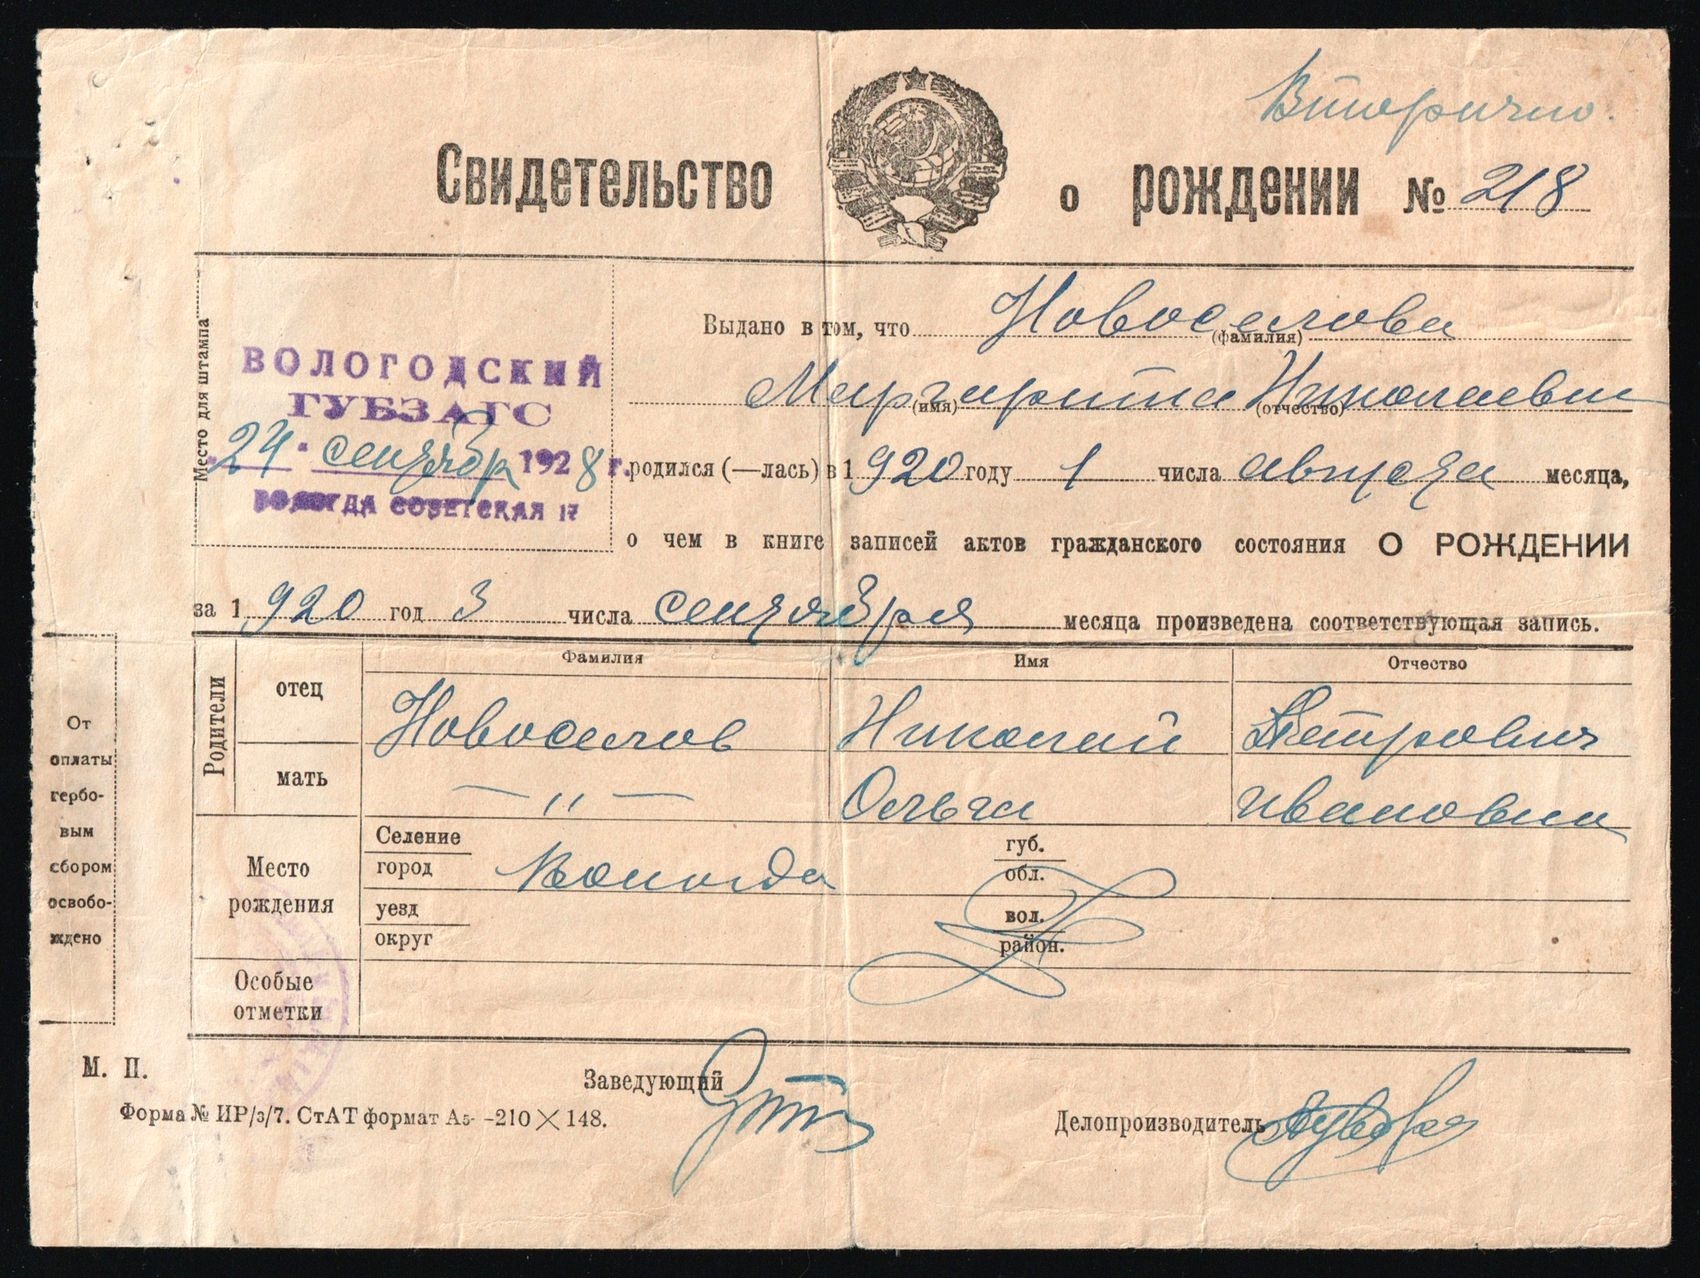 Вторично.
Свидетельство о рождении № 218
Место для штампа
ВОЛОГОДСКИЙ
ГУБЗАГС
24 " сентября 1928 г.
ВОЛОГДА СОВЕТСКАЯ 17
Выдано в том, что Новоселова
(фамилия)
Маргарита Николаевна
(имя) (отчество)
родился (—лась) в 1920 году 1 числа августа месяца,
о чем в книге записей актов гражданского состояния О РОЖДЕНИИ
за 1920 год 3 числа сентября месяца произведена соответствующая запись.
Родители
Фамилия Имя Отчество
отец Новоселов Николай Петрович
мать — " — Ольга Ивановна
Место рождения
Селение
город Вологда
уезд
округ
губ.
обл.
вол.
район.
Особые
отметки
От
оплаты
гербо-
вым
сбором
освобо-
ждено
М. П.
Заведующий
Форма № ИР/3/7. СтАТ формат А5- -210×148.
Делопроизводитель